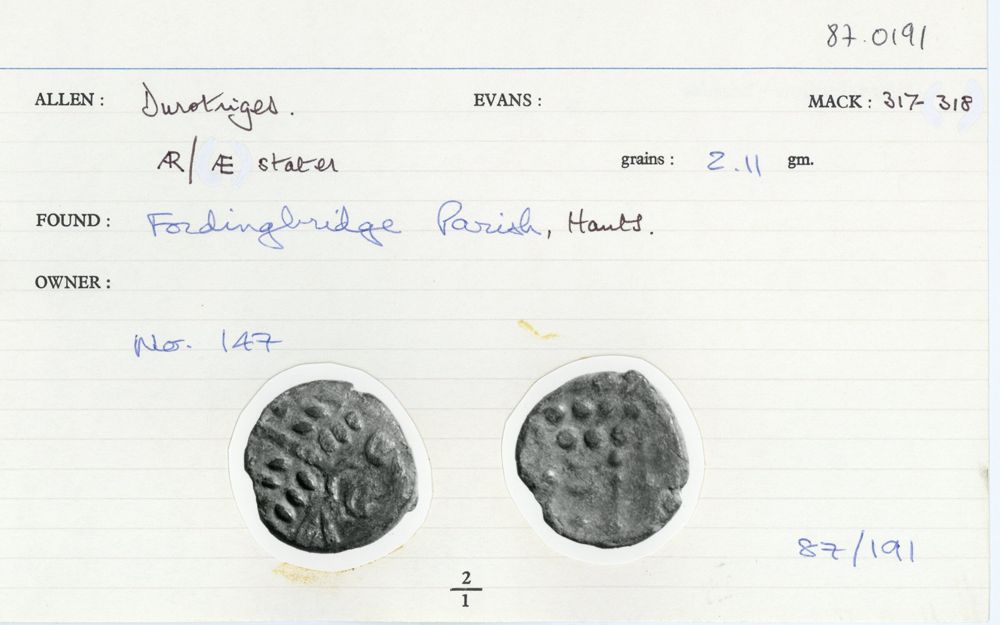 87.0191
ALLEN : Durotriges. EVANS : MACK : 317-318
ÆR/Æ stater grains : 2.11 gm.
FOUND : Fordingbridge Parish, Hants.
OWNER :
No. 147
87/191
2
1